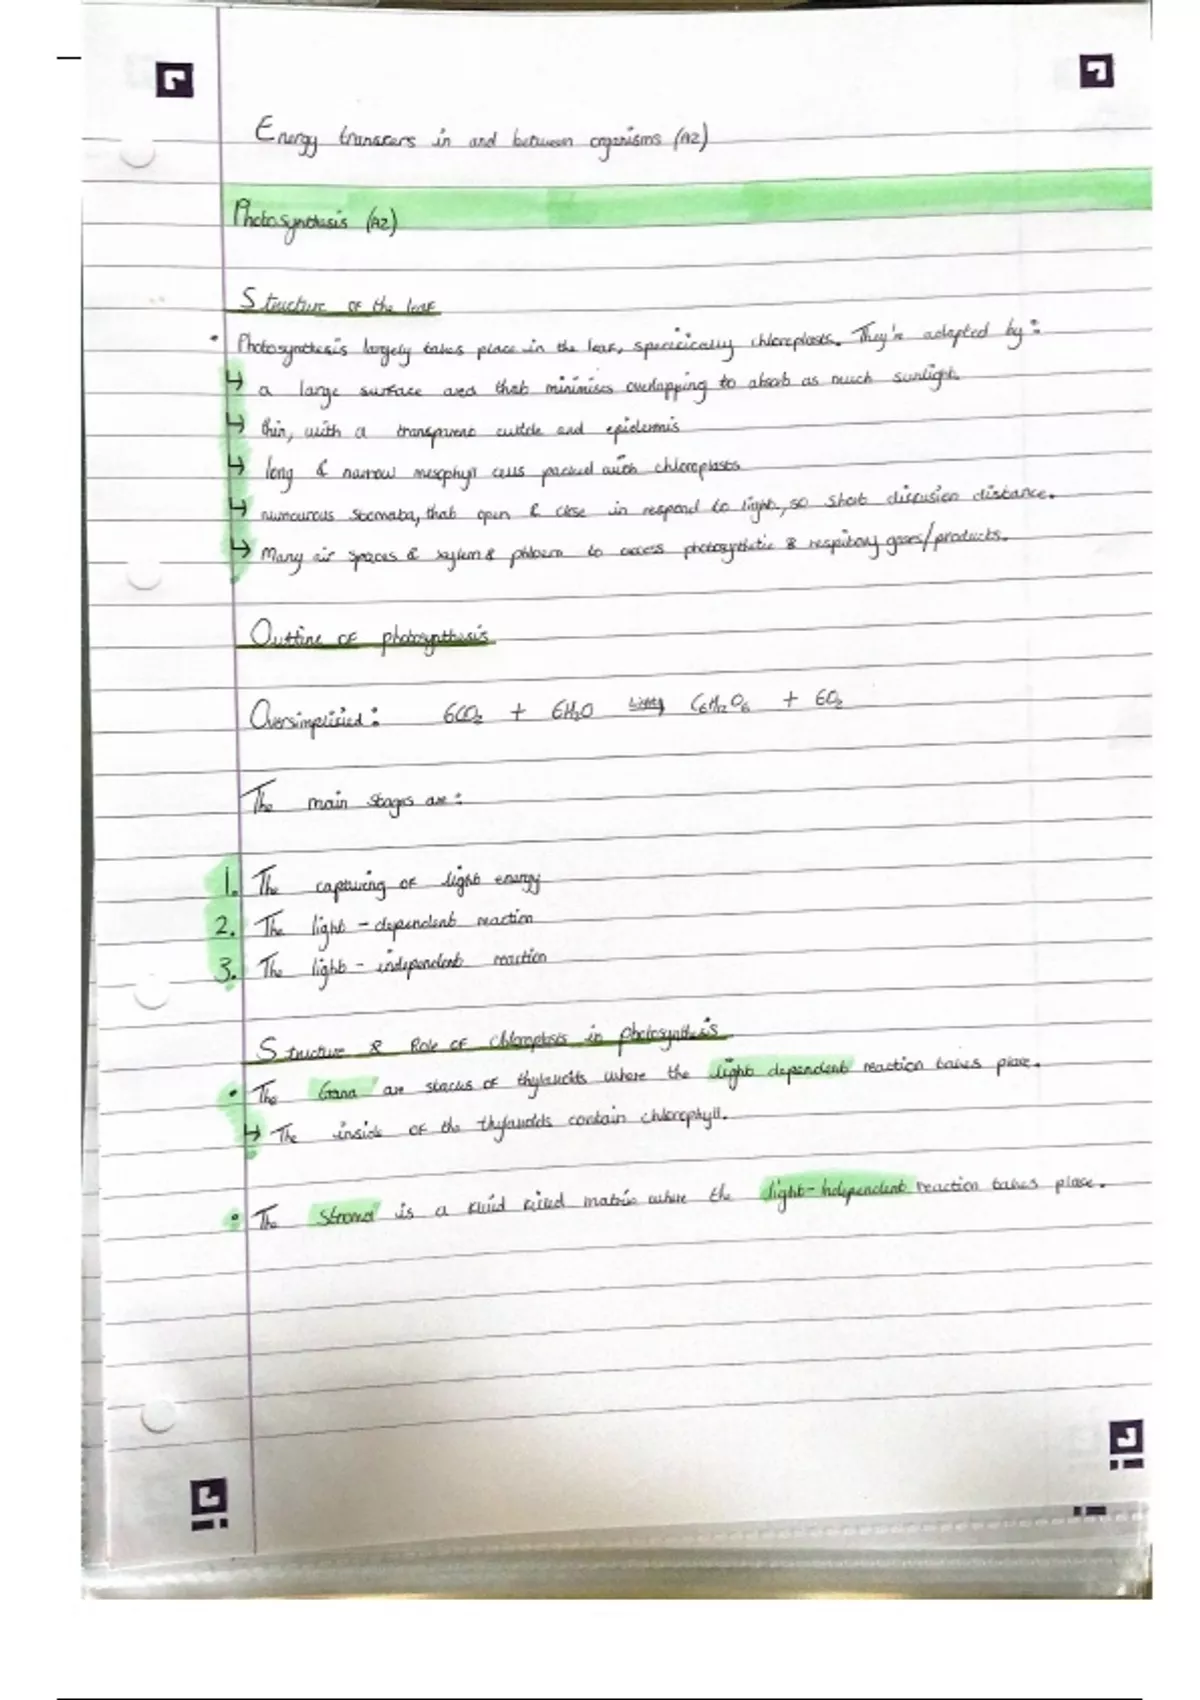 Energy transfers in and between organisms (A2)
Photosynthesis (A2)
Structure of the leaf
• Photosynthesis largely takes place in the leaf, specifically chloroplasts. They're adapted by:
↳ a large surface area that minimises overlapping to absorb as much sunlight.
↳ thin, with a transparent cuticle and epidermis
↳ long & narrow mesophyll cells packed with chloroplasts
↳ numourous stomata, that open & close in respond to light, so short diffusion distance.
↳ Many air spaces & xylem & phloem to access photosynthetic & respiitory gases/products.
Outline of photosynthesis
Oversimplified: 6CO₂ + 6H₂O light→ C₆H₁₂O₆ + 6O₂
The main stages are:
1. The capturing of light energy
2. The light-dependent reaction
3. The light-independent reaction
Structure & Role of chloroplasts in photosynthesis
• The Grana are stacks of thylakoids where the light dependent reaction takes place.
↳ The inside of the thylakoids contain chlorophyll.
• The stroma is a fluid filled matrix where the light-independent reaction takes place.